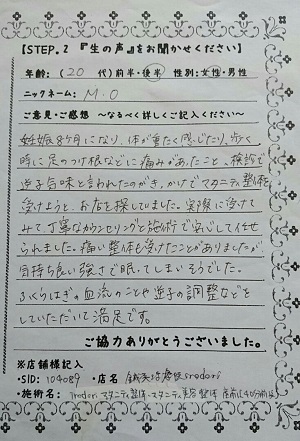 【STEP.2 『生の声』をお聞かせください】
年齢:(20 代)前半・後半 性別:女性・男性
ニックネーム: M.O
ご意見・ご感想 ～なるべく詳しくご記入ください～
妊娠8ヶ月になり、体が重たく感じたり、歩く
時に足のつけ根などに痛みがあったこと、検診で
逆子気味と言われたのがきっかけでマタニティ整体を
受けようと、お店を探していました。実際に受けて
みて、丁寧なカウンセリングと施術で安心して任せ
られました。痛い整体も受けたことがありましたが
気持ち良い強さで眠ってしまいそうでした。
ふくらはぎの血流のことや逆子の調整などを
していただいて満足です。
ご協力ありがとうございました。
※店舗様記入
・SID: 104089 ・店名
・施術名: マタニティ整体